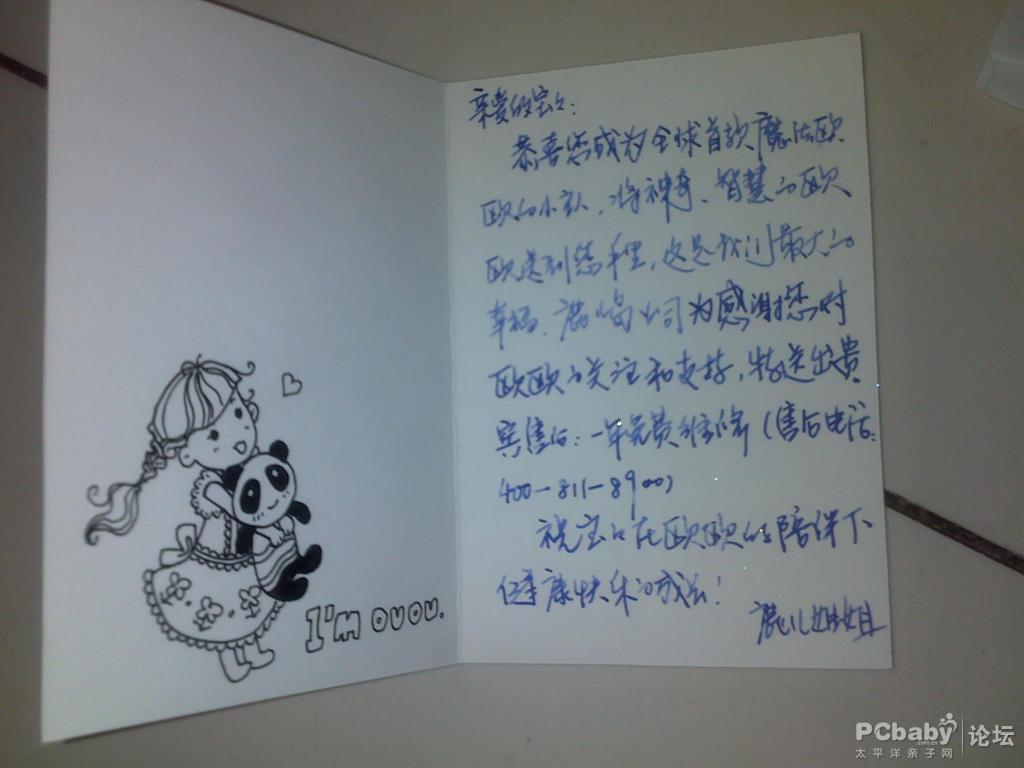 I'M OUOU.
亲爱的宝宝：
恭喜您成为全球首款魔法欧
欧的小主人，将神奇、智慧的欧
欧送到您手里，这是我们最大的
幸福、公司为感谢您对
欧欧的关注和支持，特送出贵
宾售后：一年免费维修（售后电话：
400-811-8900）
祝宝宝在欧欧的陪伴下
健康快乐的成长！
鹿儿姐姐
PCbaby.com.cn 论坛
太平洋亲子网